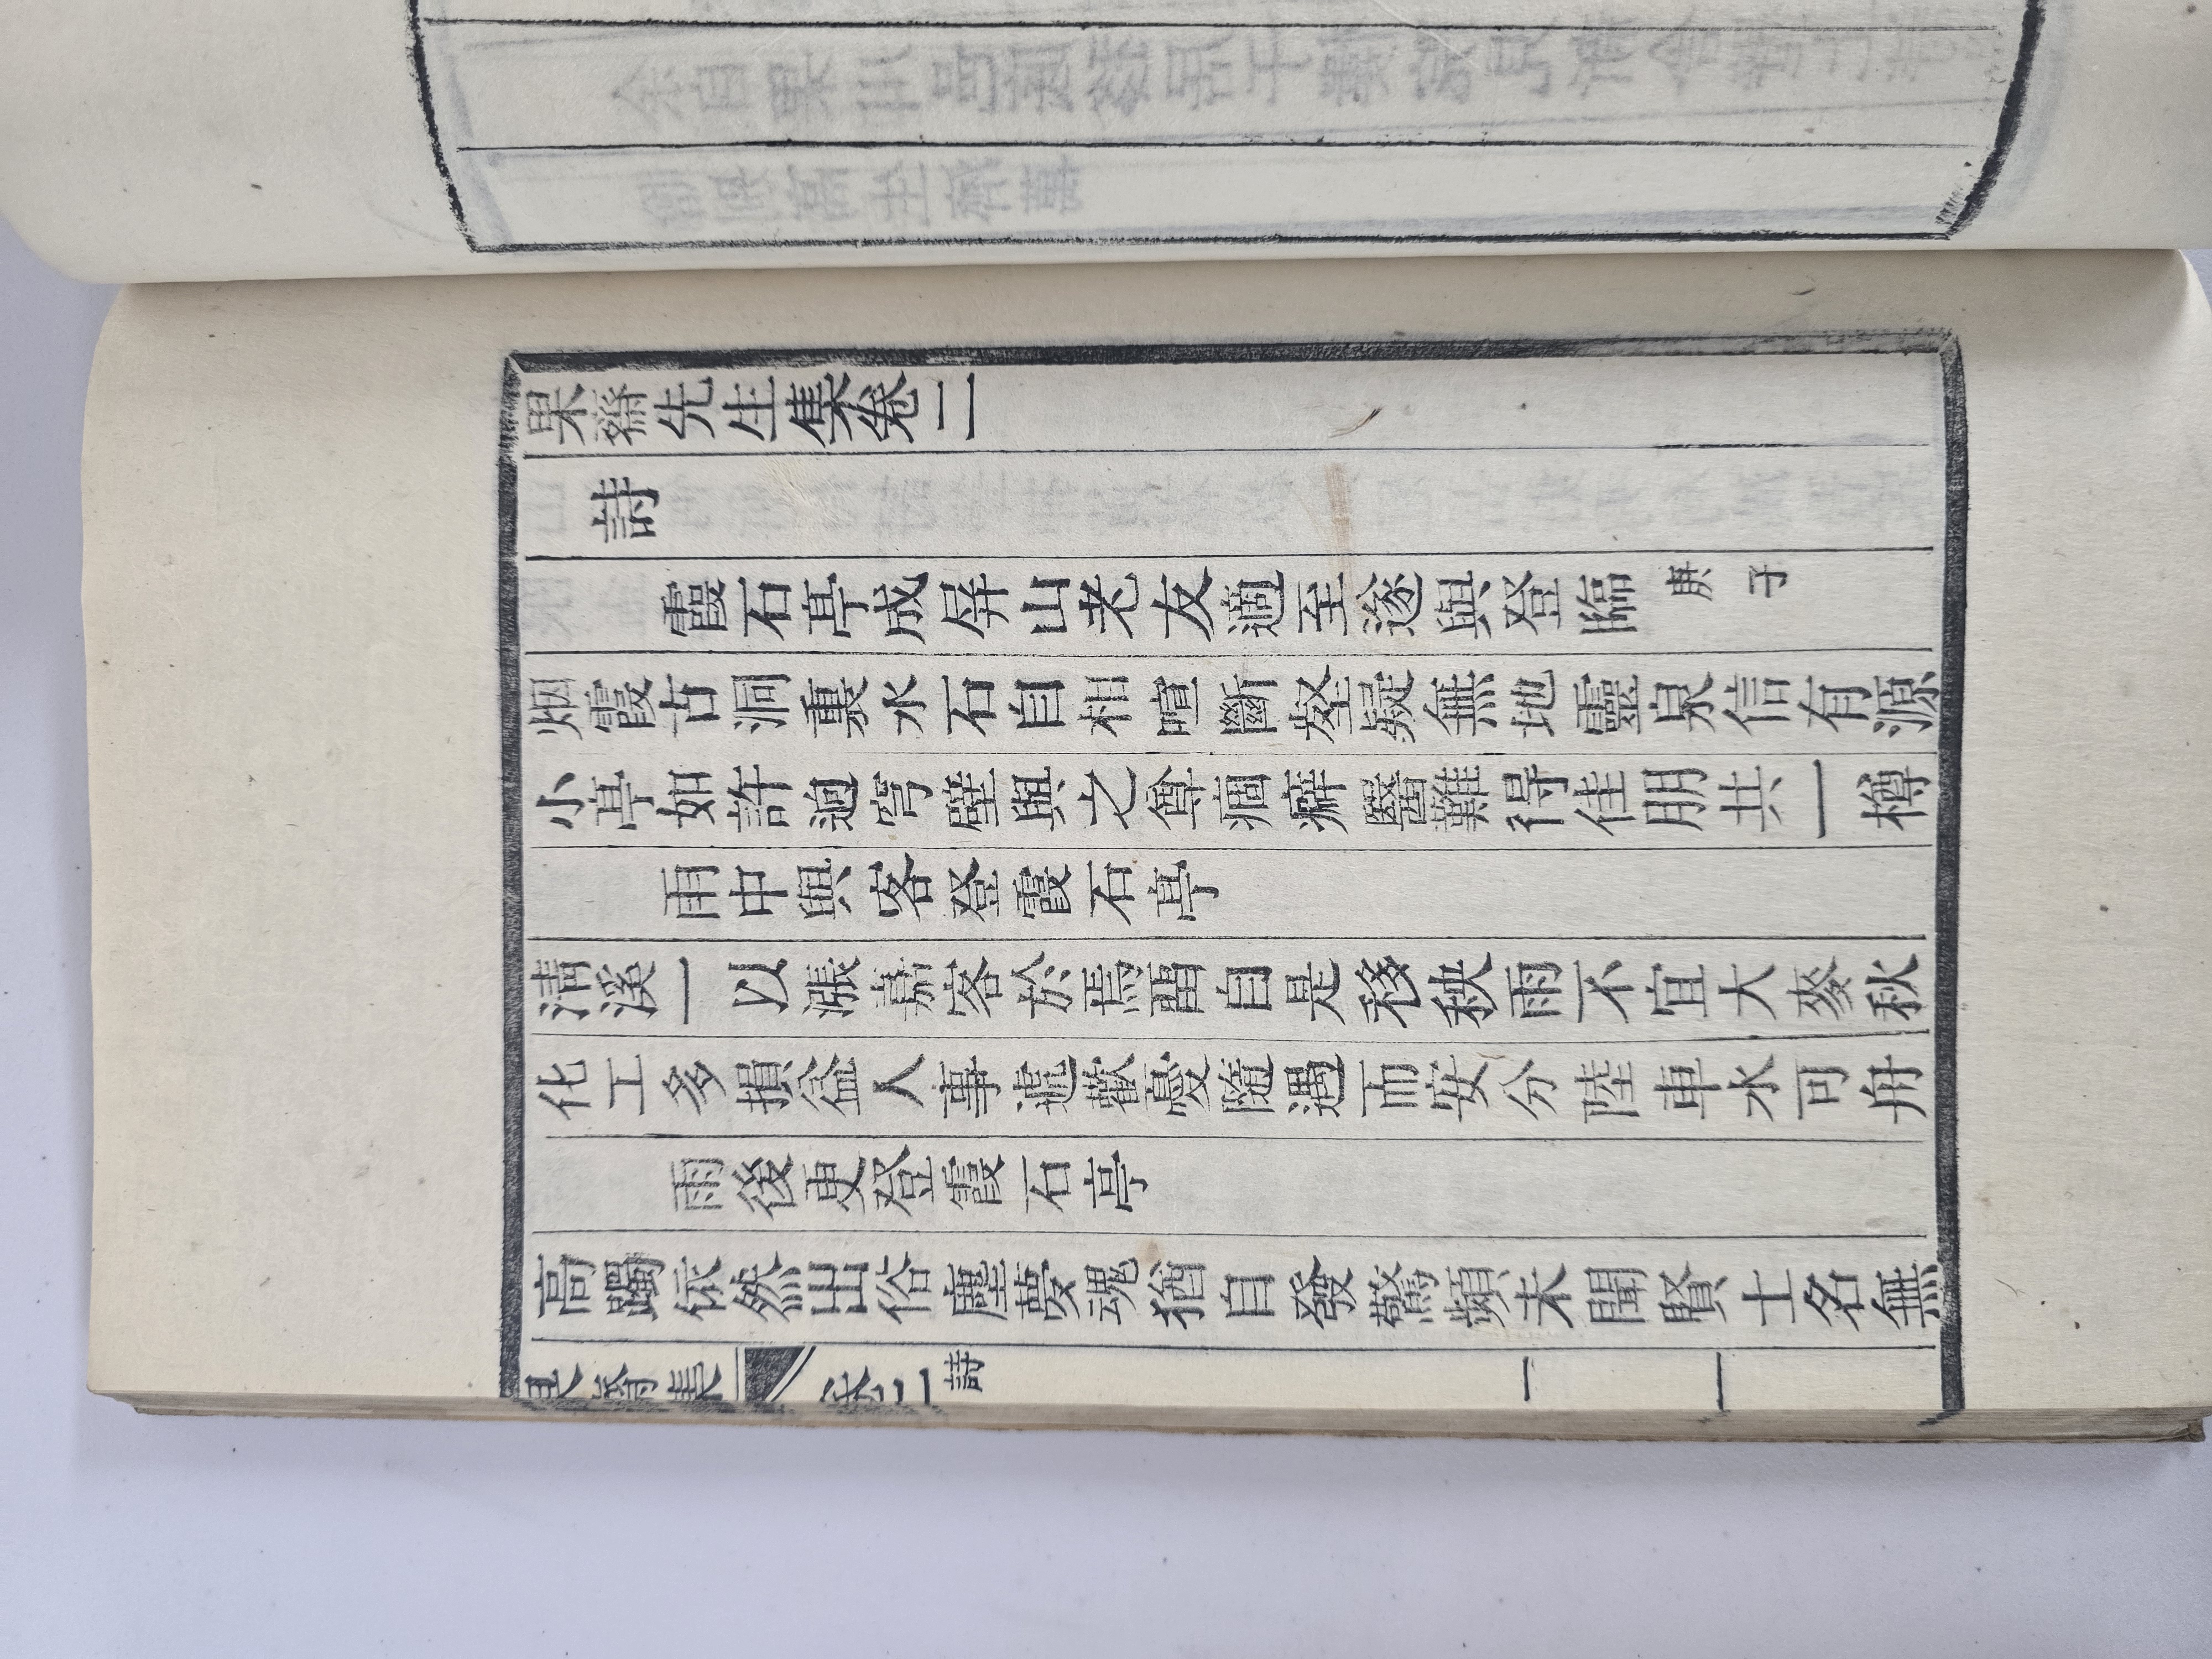 果齋先生集卷二
詩
霞石亭成屏山老友適至遂與登臨 庚子
烟霞古洞裏水石自相喧斷壑疑無地靈泉信有源
小亭如許逈穹壁與之尊痼癖醫難得佳朋共一樽
雨中與客登霞石亭
淸溪一以漲嘉客於焉留自是移秧雨不宜大麥秋
化工多損益人事遞歡憂隨遇而安分陸車水可舟
雨後更登霞石亭
高躅依然出俗塵夢魂猶自發驚頻未聞賢士名無
果齋集 卷二 詩 一